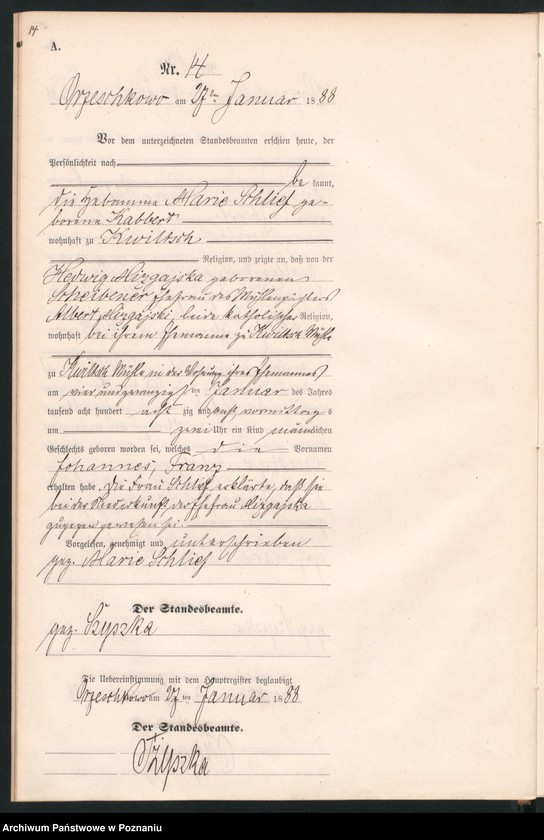 14
A.
Nr. 14
Orzeschkowo am 27ten Januar 1888
Vor dem unterzeichneten Standesbeamten erschien heute, der
Persönlichkeit nach
be kannt,
die Hebamme Marie Schlief ge-
borene Kabbert
wohnhaft zu Kwiltsch
Religion, und zeigte an, daß von der
Hedwig Mizgajska geborenen
Scherbener, Ehefrau des
Albert Mizgajski, beide katholischer Religion,
wohnhaft bei ihrem Ehemanne zu Kwiltsch Mühle
zu Kwiltsch Mühle in der Wohnung ihres Ehemannes
am vier und zwanzigsten Januar des Jahres
tausend acht hundert acht zig und acht vormittags
um zwei Uhr ein Kind männlichen
Geschlechts geboren worden sei, welches die Vornamen
Johannes, Franz
erhalten habe. Die Frau Schlief erklärte, daß sie
bei der Niederkunft der Ehefrau Mizgajska
zugegen gewesen sei.
Vorgelesen, genehmigt und unterschrieben
gez. Marie Schlief
Der Standesbeamte.
gez. Szyszka
Die Uebereinstimmung mit dem Hauptregister beglaubigt
Orzeschkowo am 27 ten Januar 1888
Der Standesbeamte.
Szyszka
Archiwum Państwowe w Poznaniu